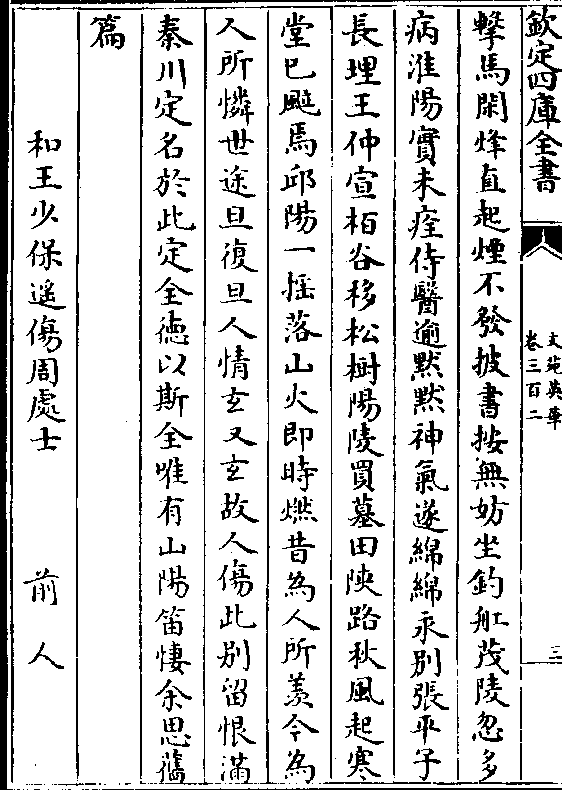 欽定四庫全書
文苑英華
卷三百二
三
擊馬閑烽直起煙不發披書按無妨坐釣舡茂陵忽多
病淮陽實未痊侍醫逾黙黙神氣遂綿綿永别張平子
長埋王仲宣栢谷移松樹陽陵買墓田陜路秋風起寒
堂已颰焉邱陽一揺落山火即時燃昔為人所羨今為
人所憐世途旦復旦人情玄又玄故人傷此别留恨滿
秦川定名於此定全徳以斯全唯有山陽笛悽余思舊
篇
和王少保遥傷周處士
前人